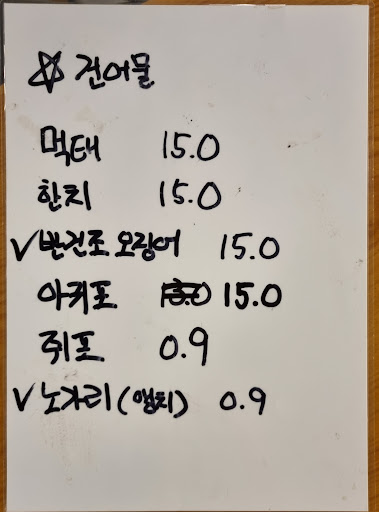 ☆ 건어물
먹태 15.0
한치 15.0
✓반건조 오징어 15.0
아귀포 15.0
쥐포 0.9
✓노가리(앵치) 0.9